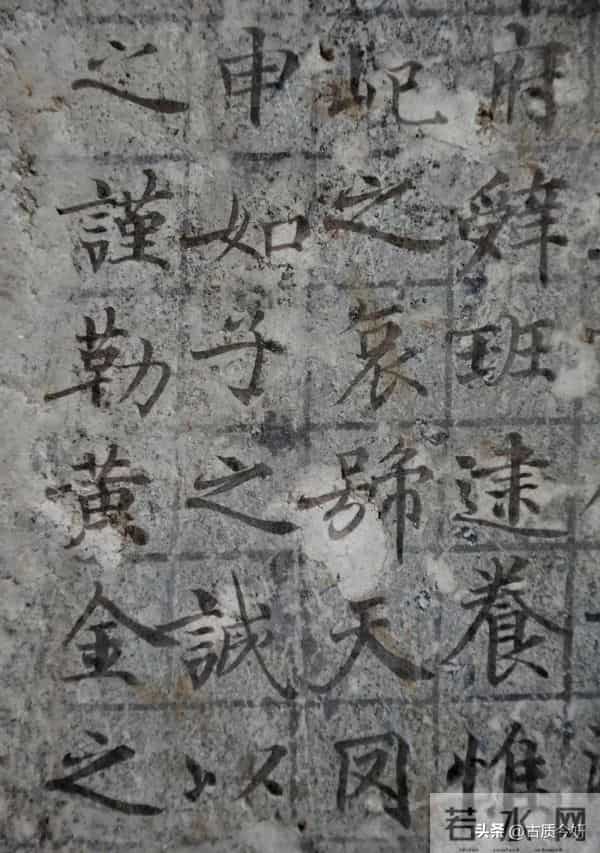 府辤班逮養惟
屺之哀號天罔
申如子之誠以
之謹勒黄金之
若水网
头条 @古质今妍